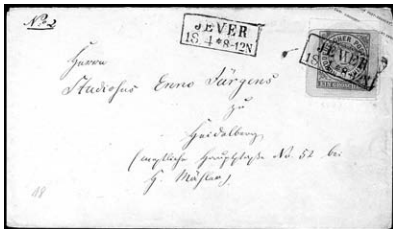 No 2
JEVER
18 4 * 8-12N
JEVER
18 4 * 8-12N
Herrn
Studiosus Enno Jürgens
zu
Heidelberg
Hauptstraße No. 52 bei